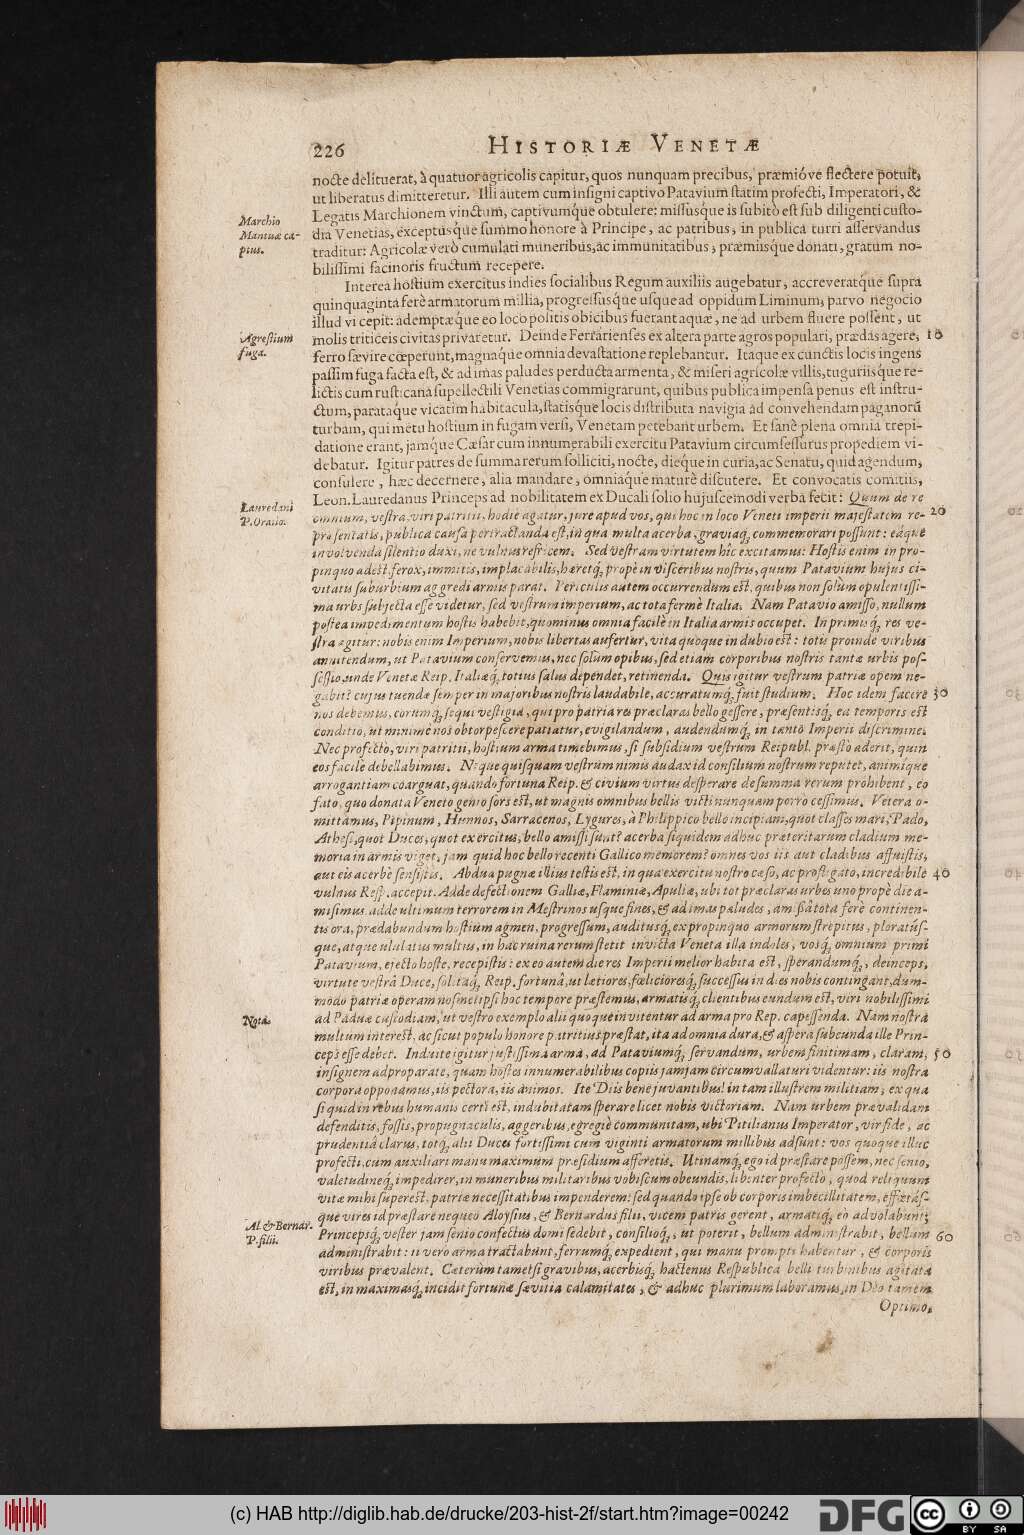 226 HISTORIÆ VENETÆ
nocte delituerat, à quatuor agricolis capitur, quos nunquam precibus, præmióve flectere potuit,
ut liberatus dimitteretur. Illi autem cum insigni captivo Patavium statim profecti, Imperatori, &
Legatis Marchionem vinctum, captivumque obtulere: missusque is subitò est sub diligenti custo-
Marchio
Mantuæ ca-
ptus.
dia Venetias, exceptusque summo honore à Principe, ac patribus, in publica turri asservandus
traditur: Agricolæ verò cumulati muneribus, ac immunitatibus, præmiisque donati, gratum no-
bilissimi facinoris fructum recepere.
Interea hostium exercitus indies socialibus Regum auxiliis augebatur, accreveratque supra
quinquaginta ferè armatorum millia, progressusque usque ad oppidum Liminum, parvo negocio
illud vi cepit: ademptæque eo loco positis obicibus fuerant aquæ, ne ad urbem fluere possent, ut
Agrestium
fuga.
molis triticeis civitas privaretur. Deinde Ferrarienses ex altera parte agros populari, prædas agere, 10
ferro sævire cœperunt, magnaque omnia devastatione replebantur. Itaque ex cunctis locis ingens
passim fuga facta est, & ad imas paludes perducta armenta, & miseri agricolæ villis, tuguriisque re-
lictis cum rusticana supellectili Venetias commigrarunt, quibus publica impensa penus est instru-
ctum, parataque vicatim habitacula, statisque locis distributa navigia ad convehendam paganorū
turbam, qui metu hostium in fugam versi, Venetam petebant urbem. Et sanè plena omnia trepi-
datione erant, jamque Cæsar cum innumerabili exercitu Patavium circumsessurus propediem vi-
debatur. Igitur patres de summa rerum solliciti, nocte, dieque in curia, ac Senatu, quid agendum,
consulere, hæc decernere, alia mandare, omniaque maturè discutere. Et convocatis comitiis,
Lauredani
P. Oratio.
Leon. Lauredanus Princeps ad nobilitatem ex Ducali solio hujuscemodi verba fecit: Quum de re
omnium, vestra, viri patritii, hodie agatur, jure apud vos, qui hoc in loco Veneti imperii majestatem re- 20
præsentatis, publica causa pertractanda est, in qua multa acerba, graviaq; commemorari possunt: eáque
involvenda silentio duxi, ne vulnus refricem. Sed vestram virtutem hîc excitamus: Hostis enim in pro-
pinquo adest ferox, immitis, implacabilis, hæretq; propè in visceribus nostris, quum Patavium hujus ci-
vitatis suburbium aggredi armis parat. Periculis autem occurrendum est, quibus non solùm opulentissi-
ma urbs subjecta esse videtur, sed vestrum imperium, ac tota fermè Italia. Nam Patavio amisso, nullum
postea impedimentum hostis habebit, quominus omnia facilè in Italia armis occupet. In primisq; res ve-
stra agitur: nobis enim Imperium, nobis libertas aufertur, vita quoque in dubio est: totis proinde viribus
annitendum, ut Patavium conservemus, nec solùm opibus, sed etiam corporibus nostris tantæ urbis pos-
sessio, unde Venetæ Reip. Italiæq; totius salus dependet, retinenda. Quis igitur vestrum patriæ opem ne-
gabit? cujus tuendæ semper in majoribus nostris laudabile, accuratumq; fuit studium. Hoc idem facere 30
nos debemus, eorumq; sequi vestigia, qui pro patria res præclaras bello gessere, præsentisq; ea temporis est
conditio, ut minimè nos obtorpescere patiatur, evigilandum, audendumq; in tantò Imperii discrimine.
Nec profectò, viri patritii, hostium arma timebimus, si subsidium vestrum Reipubl. præstò aderit, quin
eos facile debellabimus. Neque quisquam vestrûm nimis audax id consilium nostrum reputet, animique
arrogantiam coarguat, quando fortuna Reip. & civium virtus desperare de summa rerum prohibent, eo
fato, quo donata Veneto genio sors est, ut magnis omnibus bellis victi nunquam porrò cessimus. Vetera o-
mittamus, Pipinum, Hunnos, Sarracenos, Lygures, à Philippico bello incipiam, quot classes mari, Pado,
Athesi, quot Duces, quot exercitus, bello amissi sunt? acerba siquidem adhuc præteritarum cladium me-
moria in armis viget, jam quid hoc bello recenti Gallico memorem? omnes vos iis aut cladibus affuistis,
aut eis acerbè sensistis. Abduæ pugnæ illius testis est, in qua exercitu nostro cæso, ac profligato, incredibile 40
vulnus Resp. accepit. Adde defectionem Galliæ, Flaminiæ, Apuliæ, ubi tot præclaras urbes uno propè die a-
misimus, adde ultimum terrorem in Mestrinos usque fines, & ad imas paludes, amissâ tota ferè continen-
tis ora, prædabundum hostium agmen, progressum, auditusq; ex propinquo armorum strepitus, ploratúsque,
que, atque ululatus multus, in hac ruina rerum stetit invicta Veneta illa indoles, vosq; omnium primi
Patavium, ejecto hoste, recepistis: ex eo autem die res Imperii melior habita est, sperandumq;, deinceps,
virtute vestrâ Duce, solitâq; Reip. fortunâ, ut lætiores, fœlicioresq; successus in dies nobis contingant, dum-
modo patriæ operam nosmetipsi hoc tempore præstemus, armatisq; clientibus eundum est, viri nobilissimi
Nota.
ad Paduæ custodiam, ut vestro exemplo alii quoque invitentur ad arma pro Rep. capessenda. Nam nostrâ
multum interest, ac sicut populo honore patritius præstat, ita ad omnia dura, & aspera subeunda ille Prin-
ceps esse debet. Induite igitur justissima arma, ad Pataviumq; servandum, urbem finitimam, claram, 50
insignem adproperate, quam hostes innumerabilibus copiis jamjam circumvallaturi videntur: iis nostra
corpora opponamus, iis pectora, iis animos. Ite Diis bene juvantibus! in tam illustrem militiam, ex qua
si quid in rebus humanis certi est, indubitatam sperare licet nobis victoriam. Nam urbem prævalidam
defenditis, fossis, propugnaculis, aggeribus, egregiè communitam, ubi Pitilianus Imperator, vir fide, ac
prudentiâ clarus, totq; alii Duces fortissimi cum viginti armatorum millibus adsunt: vos quoque illuc
profecti, cum auxiliari manu maximum præsidium afferetis. Utinamq; ego id præstare possem, nec senio,
valetudineq; impedirer, in muneribus militaribus vobiscum obeundis, libenter profecto, quod reliquum
vitæ mihi superest, patriæ necessitatibus impenderem: sed quando ipse ob corporis imbecillitatem, effœtás-
Al. & Bernar.
P. filii.
que vires id præstare nequeo Aloysius, & Bernardus filii, vicem patris gerent, armatiq; eò advolabunt;
Princepsq; vester jam senio confectus domi sedebit, consilioq;, ut poterit, bellum administrabit, bellum 60
administrabit: ii verò arma tractabunt, ferrumq; expedient, qui manu prompti habentur, & corporis
viribus prævalent. Cæterùm tametsi gravibus, acerbisq; hactenus Respublica belli turbinibus agitata
est, in maximasq; incidit fortunæ sævitia calamitates, & adhuc plurimum laboramus, in Deo tamen
Optimo,
(c) HAB http://diglib.hab.de/drucke/203-hist-2f/start.htm?image=00242
DFG
cc
BY SA